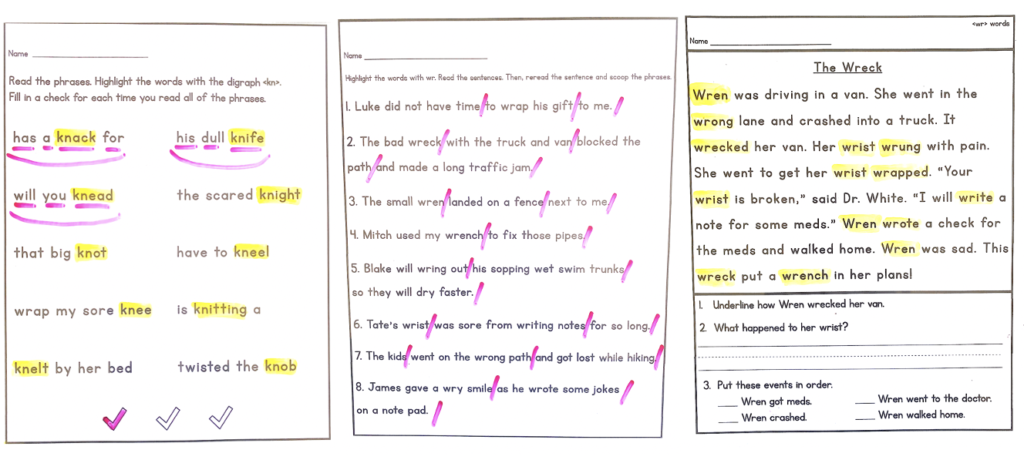 Name
Read the phrases. Highlight the words with the digraph <kn>.
Fill in a check for each time you read all of the phrases.
has a knack for
his dull knife
will you knead
the scared knight
that big knot
have to kneel
wrap my sore knee
is knitting a
knelt by her bed
twisted the knob
Name
Highlight the words with wr. Read the sentences. Then, reread the sentence and scoop the phrases.
1. Luke did not have time to wrap his gift to me.
2. The bad wreck with the truck and van blocked the
path and made a long traffic jam.
3. The small wren landed on a fence next to me.
4. Mitch used my wrench to fix those pipes.
5. Blake will wring out his sopping wet swim trunks
so they will dry faster.
6. Tate's wrist was sore from writing notes for so long.
7. The kids went on the wrong path and got lost while hiking.
8. James gave a wry smile as he wrote some jokes
on a note pad.
<wr> words
Name
The Wreck
Wren was driving in a van. She went in the
wrong lane and crashed into a truck. It
wrecked her van. Her wrist wrung with pain.
She went to get her wrist wrapped. "Your
wrist is broken," said Dr. White. "I will write a
note for some meds." Wren wrote a check for
the meds and walked home. Wren was sad. This
wreck put a wrench in her plans!
1. Underline how Wren wrecked her van.
2. What happened to her wrist?
3. Put these events in order.
Wren got meds.
Wren went to the doctor.
Wren crashed.
Wren walked home.